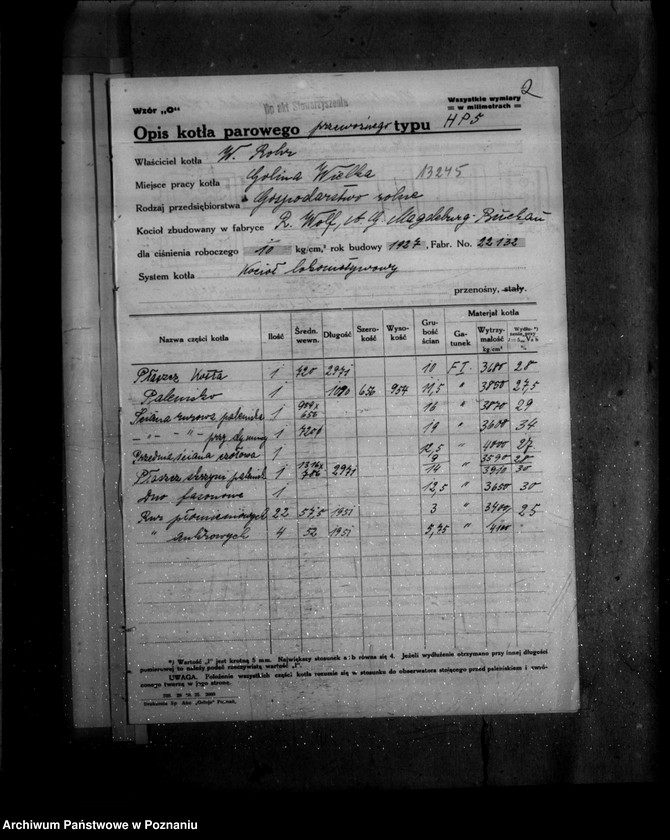 2
Wzór „O“
Do akt Stowarzyszenia
Wszystkie wymiary
w milimetrach
Opis kotła parowego przewoźnego typu HP5
Właściciel kotła W. Rohr
Miejsce pracy kotła Golina Wielka 13245
Rodzaj przedsiębiorstwa Gospodarstwo rolne
Kocioł zbudowany w fabryce R. Wolf, A. G. Magdeburg-Buckau
dla ciśnienia roboczego 10 kg/cm,² rok budowy 1927, Fabr. No. 22132
System kotła Kocioł lokomotywowy
przenośny, stały.
Nazwa części kotła Ilość Średn. wewn. Długość Szerokość Wysokość Grubość ścian Materjał kotła Gatunek Wytrzymałość kg/cm²
Płaszcz kotła 1 720 2971 10 F I. 3600 28
Palenisko 1 1090 656 954 11,5 " 3850 27,5
Ściana rurowa paleniska 1 16 " 3870 29
przy dymnicy 1 19 " 3600 34
Przednia ściana czołowa 1 12,5 " 4000 27
Płaszcz skrzyni palenisk 1 2971 14 "
Dno fasonowe 1 12,5 " 3650 30
Rur płomieniowych 22 57,5 1951 3 " 3400 25
" ankrowych 4 52 1951 5,75 " 4100 "
*) Wartość „l“ jest krotną 5 mm. Największy stosunek a : b równa się 4. Jeżeli wydłużenie otrzymano przy innej długości
pomiarowej to należy podać rzeczywistą wartość „l“.
UWAGA. Położenie wszystkich części kotła rozumie się w stosunku do obserwatora stojącego przed paleniskiem i zwróconego twarzą w jego stronę.
Drukarnia Sp. Akc. „Ostoja“ Poznań,
Archiwum Państwowe w Poznaniu